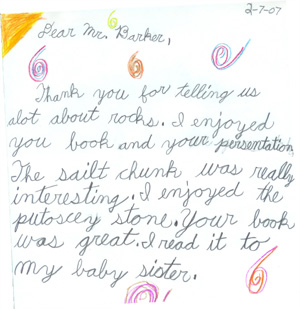 2-7-07
Dear Mr. Barker,
Thank you for telling us
alot about rocks. I enjoyed
you book and your persentation
The sailt chunk was really
interesting. I enjoyed the
putoscey stone. Your book
was great. I read it to
my baby sister.